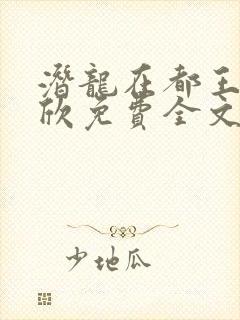 潛龍在都王
欣免費全文
少地瓜